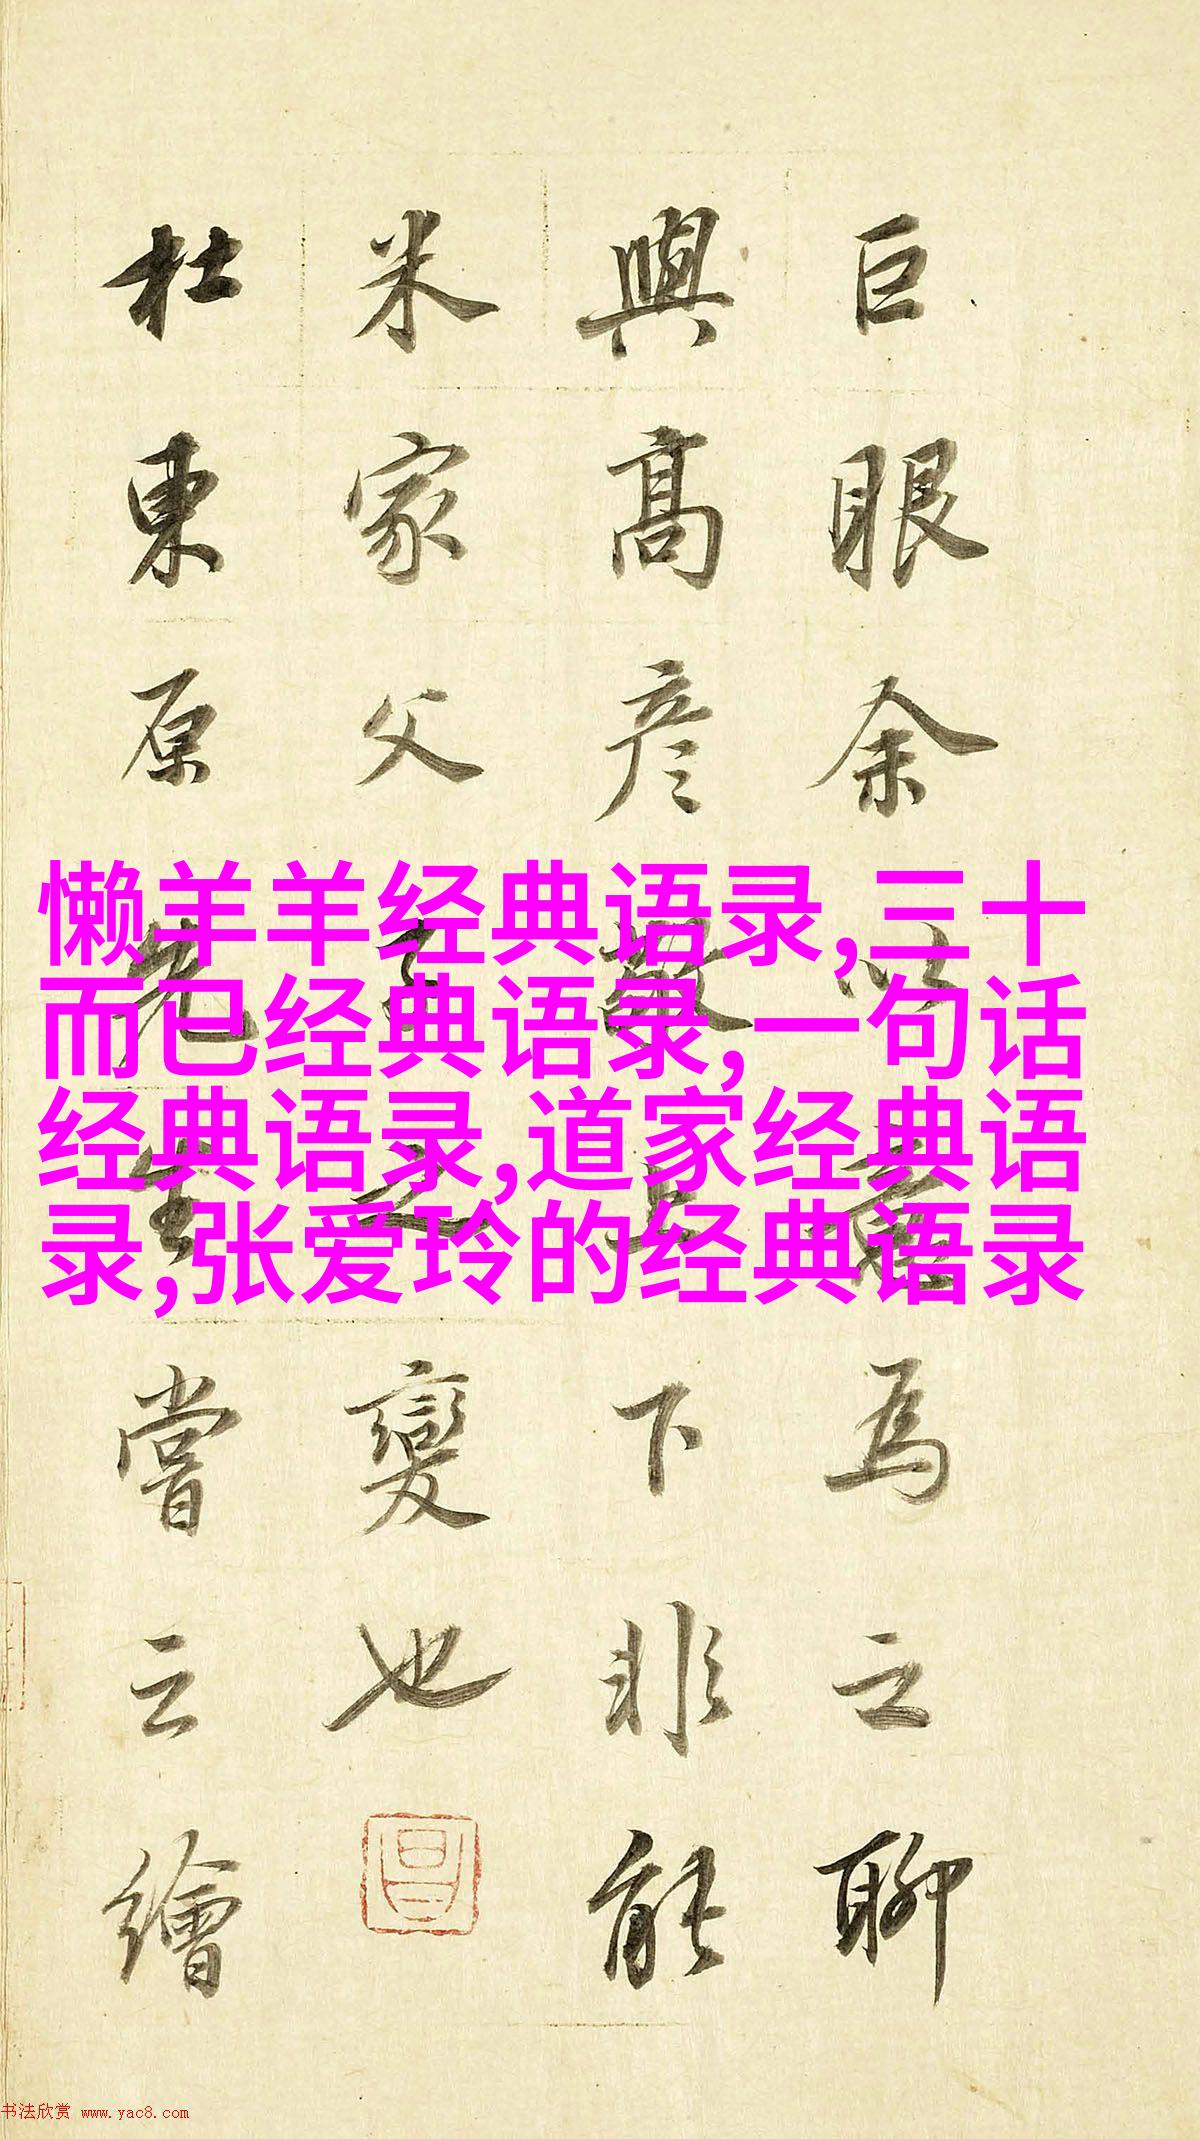 巨眼余以為之聊
與高彦敬上下非能
米家父子之變也
杜東原先生嘗云繪
懒羊羊经典语录,三十
而已经典语录,一句话
经典语录,道家经典语
录,张爱玲的经典语录
书法欣赏 www.yac8.com